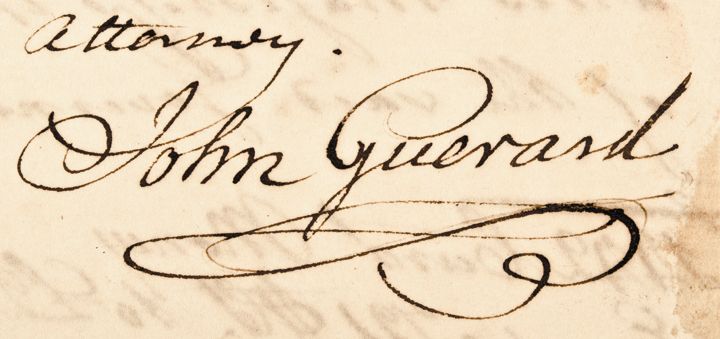 Attorney.
John Guerard